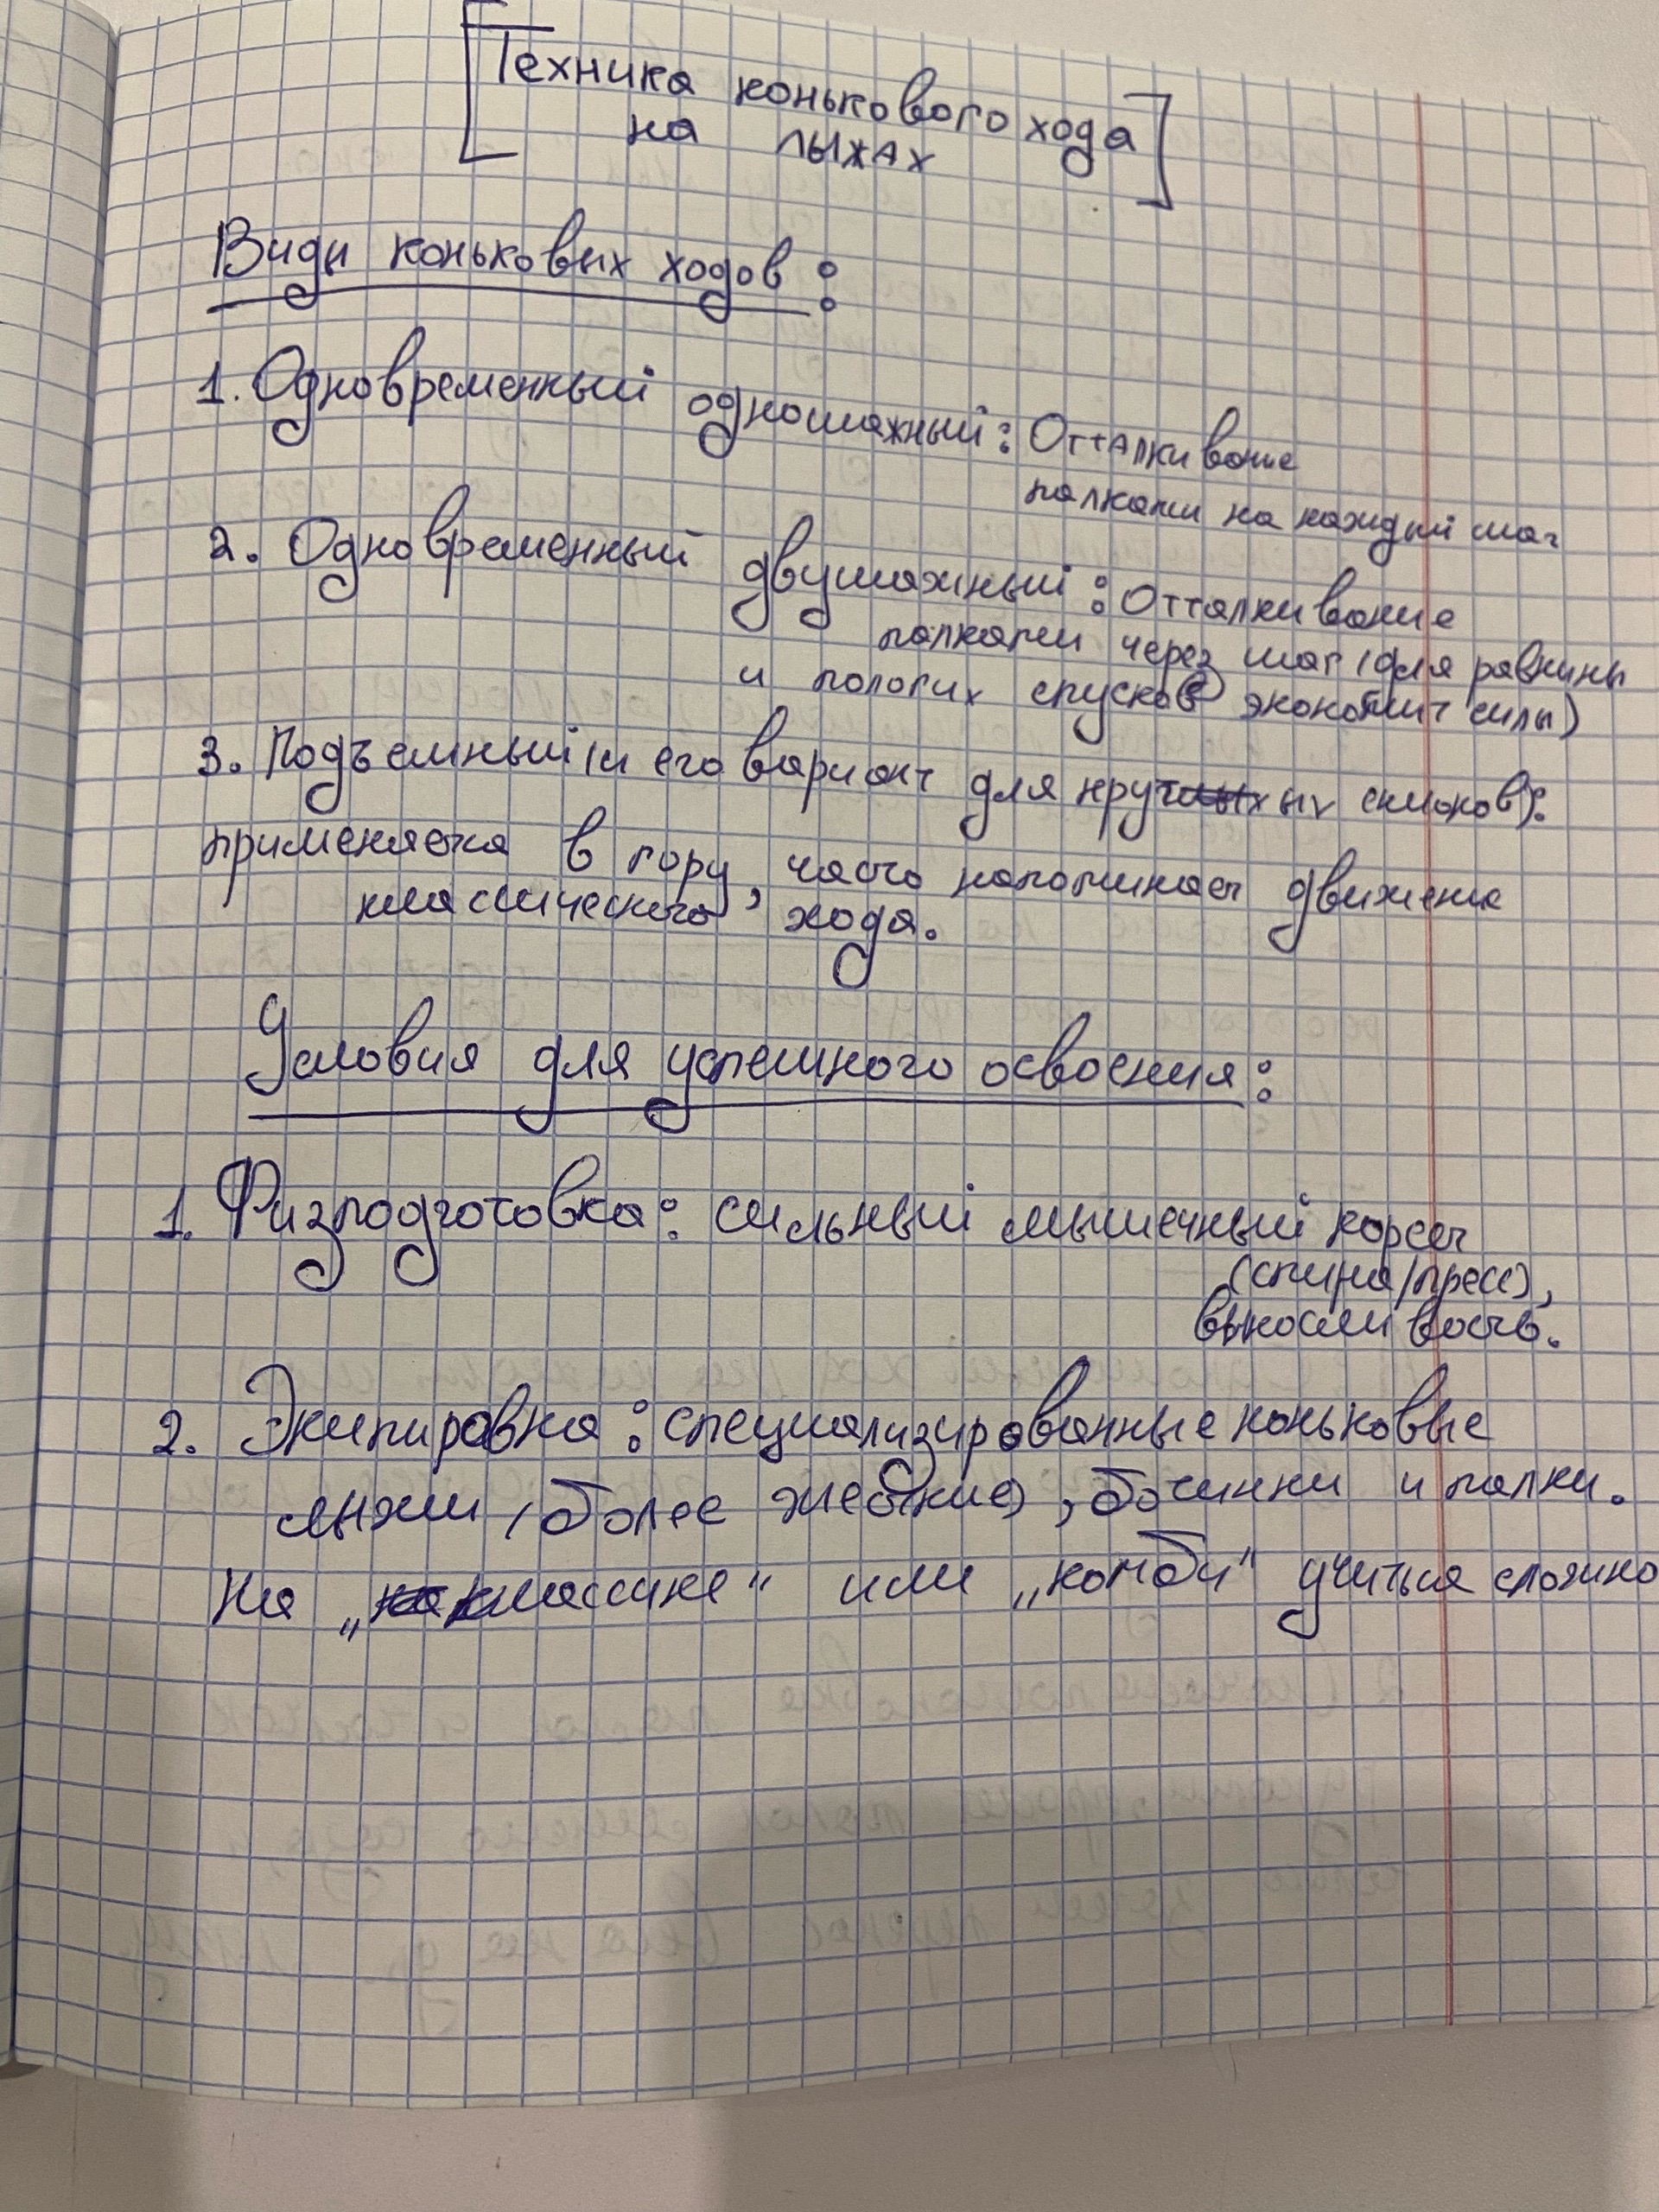 [Техника конькового хода
на лыжах]
Виды коньковых ходов:
1. Одновременный одношажный: Отталкивание
палками на каждый шаг
2. Одновременный двушажный: Отталкивание
палками через шаг (для равнины
и пологих спусков экономит силы)
3. Подъемный (и его вариант для крутых склонов):
применяется в гору, часто напоминает движение
классического хода.
Условия для успешного освоения:
1. Физподготовка: сильный мышечный корсет
(спина/пресс),
выносливость.
2. Экипировка: специализированные коньковые
лыжи (более жесткие), ботинки и палки.
На „классике" или „комби" учиться сложно